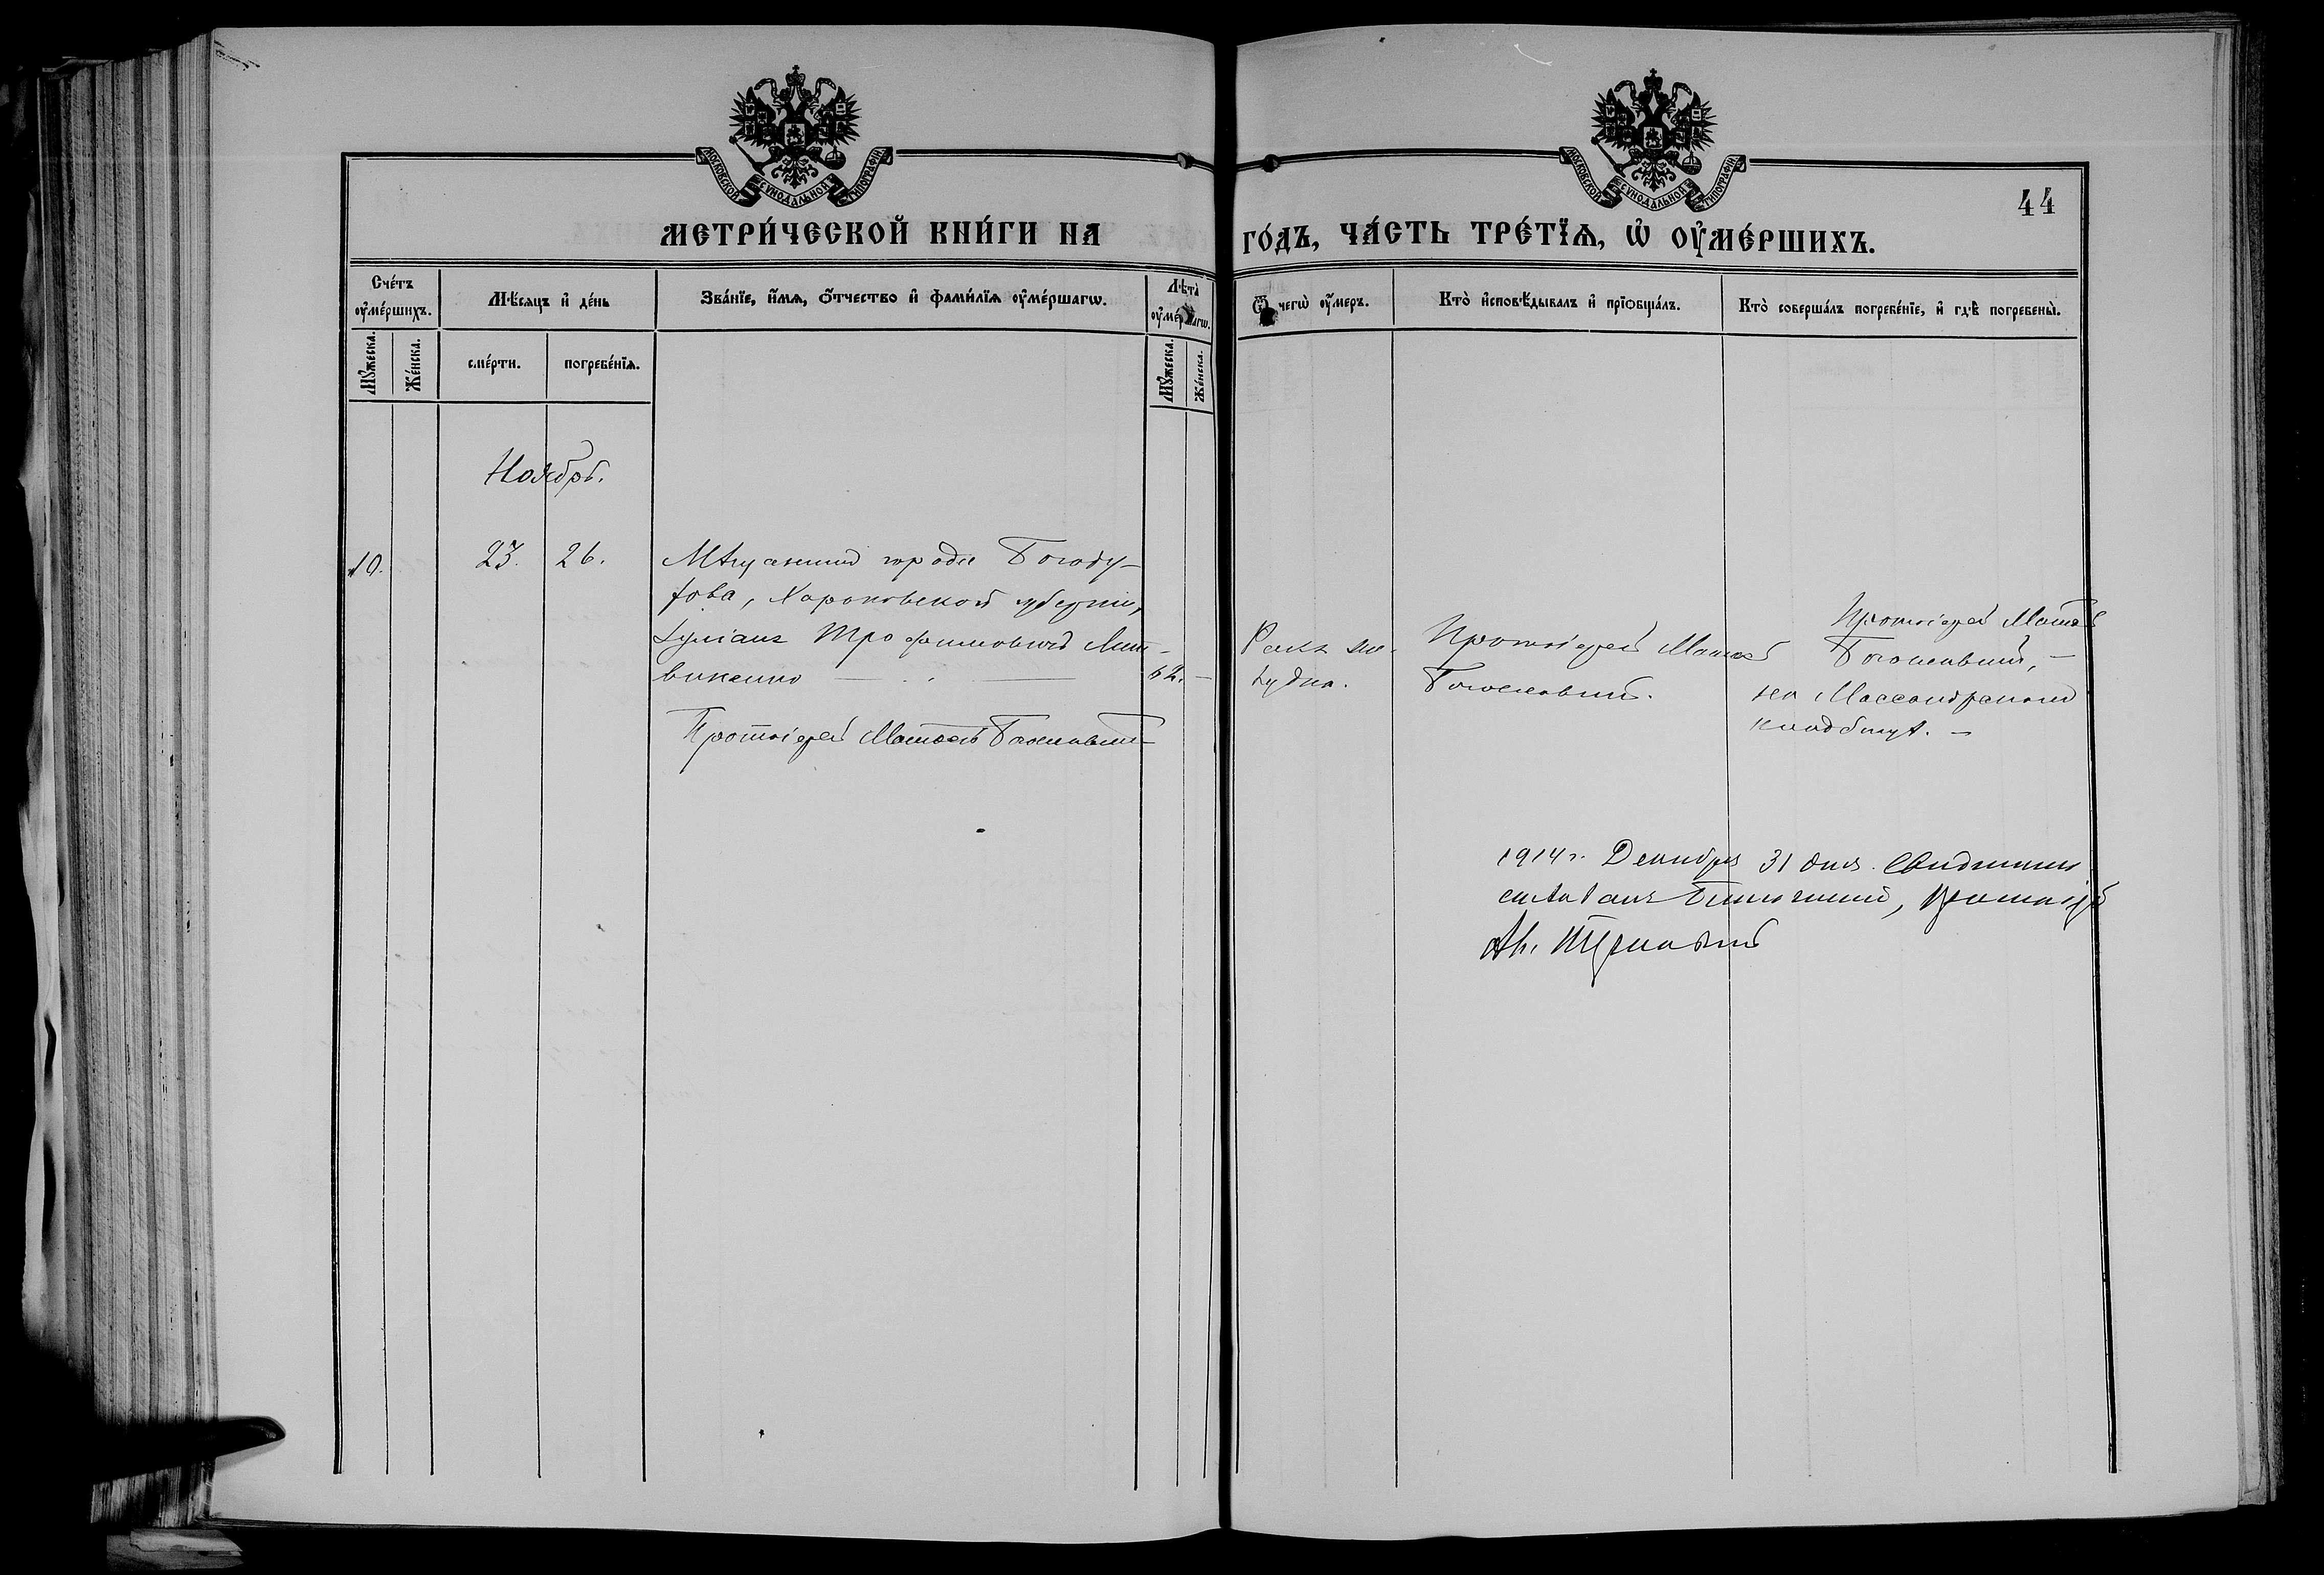 МОСКОВСКОЙ СѴНОДАЛЬНОЙ ТИПОГРАФІИ
МОСКОВСКОЙ СѴНОДАЛЬНОЙ ТИПОГРАФІИ
44
МЕТРИ́ЧЕСКОЙ КНИ́ГИ НА
ГО́ДЪ, ЧА́СТЬ ТРЕ́ТЇѦ, Ѽ ОУ҆МЕ́РШИХЪ.
Сче́тъ оу҆ме́ршихъ.
Мѣ́сяцъ и҆ де́нь
Зва́нїе, и҆́мѧ, ѻ҆́тчество и҆ фами́лїѧ оу҆ме́ршагѡ.
Лѣ́та̀ оу҆ме́ршагѡ.
Ѿ чегѡ̀ оу҆́меръ.
Кто̀ и҆сповѣ́дывалъ и҆ прїѡбща́лъ.
Кто̀ соверша́лъ погребе́нїе, и҆ гдѣ̀ погребены̀.
Мꙋ́жеска.
Же́нска.
сме́рти.
погребе́нїѧ.
Мꙋ́жеска.
Же́нска.
Ноябрь.
10.
23.
26.
Мѣщанинъ города Богоду-
хова, Харьковской губерніи,
Лукіанъ Трофимовичъ Лит-
виненко
62.
Ракъ же-
лудка.
Протоіерей Матѳей
Богословскій.
Протоіерей Матѳей
Богословскій,
на Массандрскомъ
кладбищѣ.
Протоіерей Матѳей Богословскій
1914 г. Декабря 31 дня.
Благочинный, Протоіерей